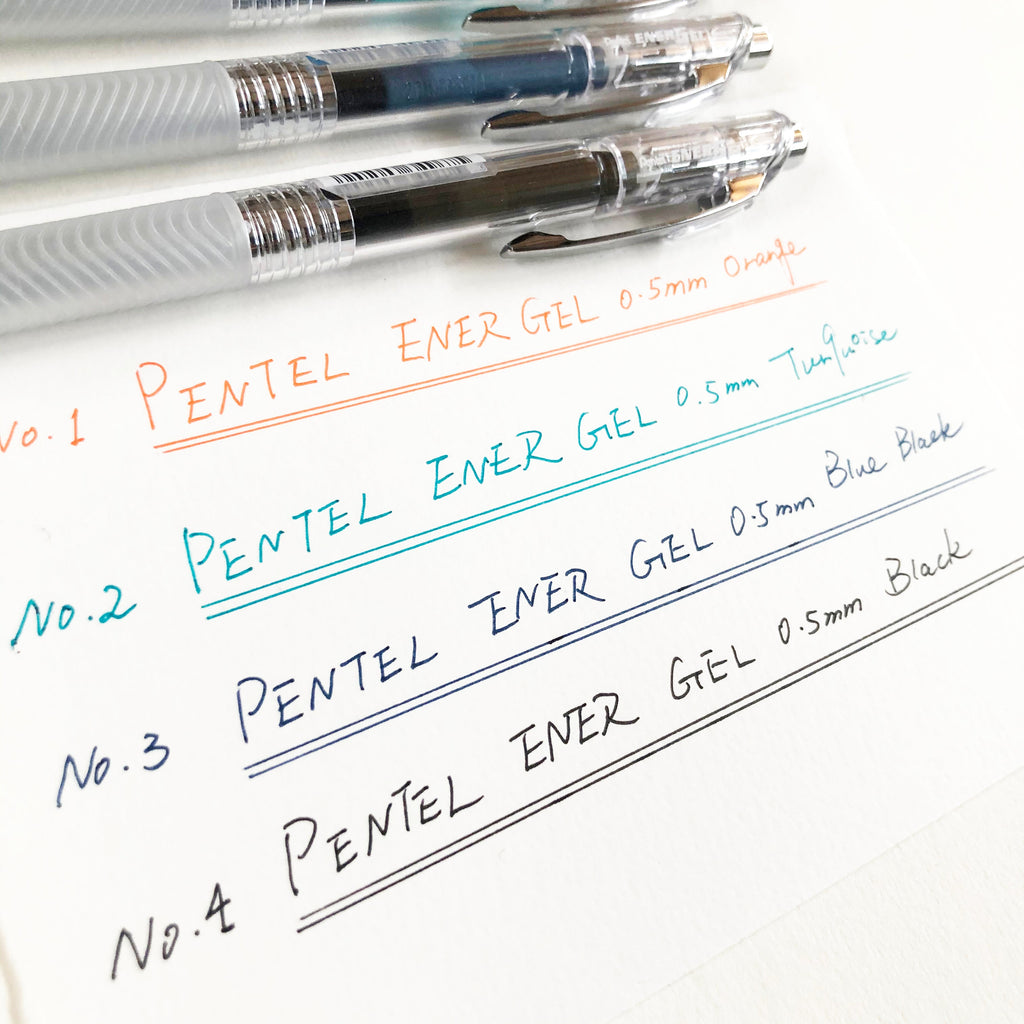 Pentel ENERGEL
Pentel ENERGEL
No.1 PENTEL ENERGEL 0.5mm Orange
No.2 PENTEL ENERGEL 0.5mm Turquoise
No.3 PENTEL ENER GEL 0.5mm Blue Black
No.4 PENTEL ENER GEL 0.5mm Black